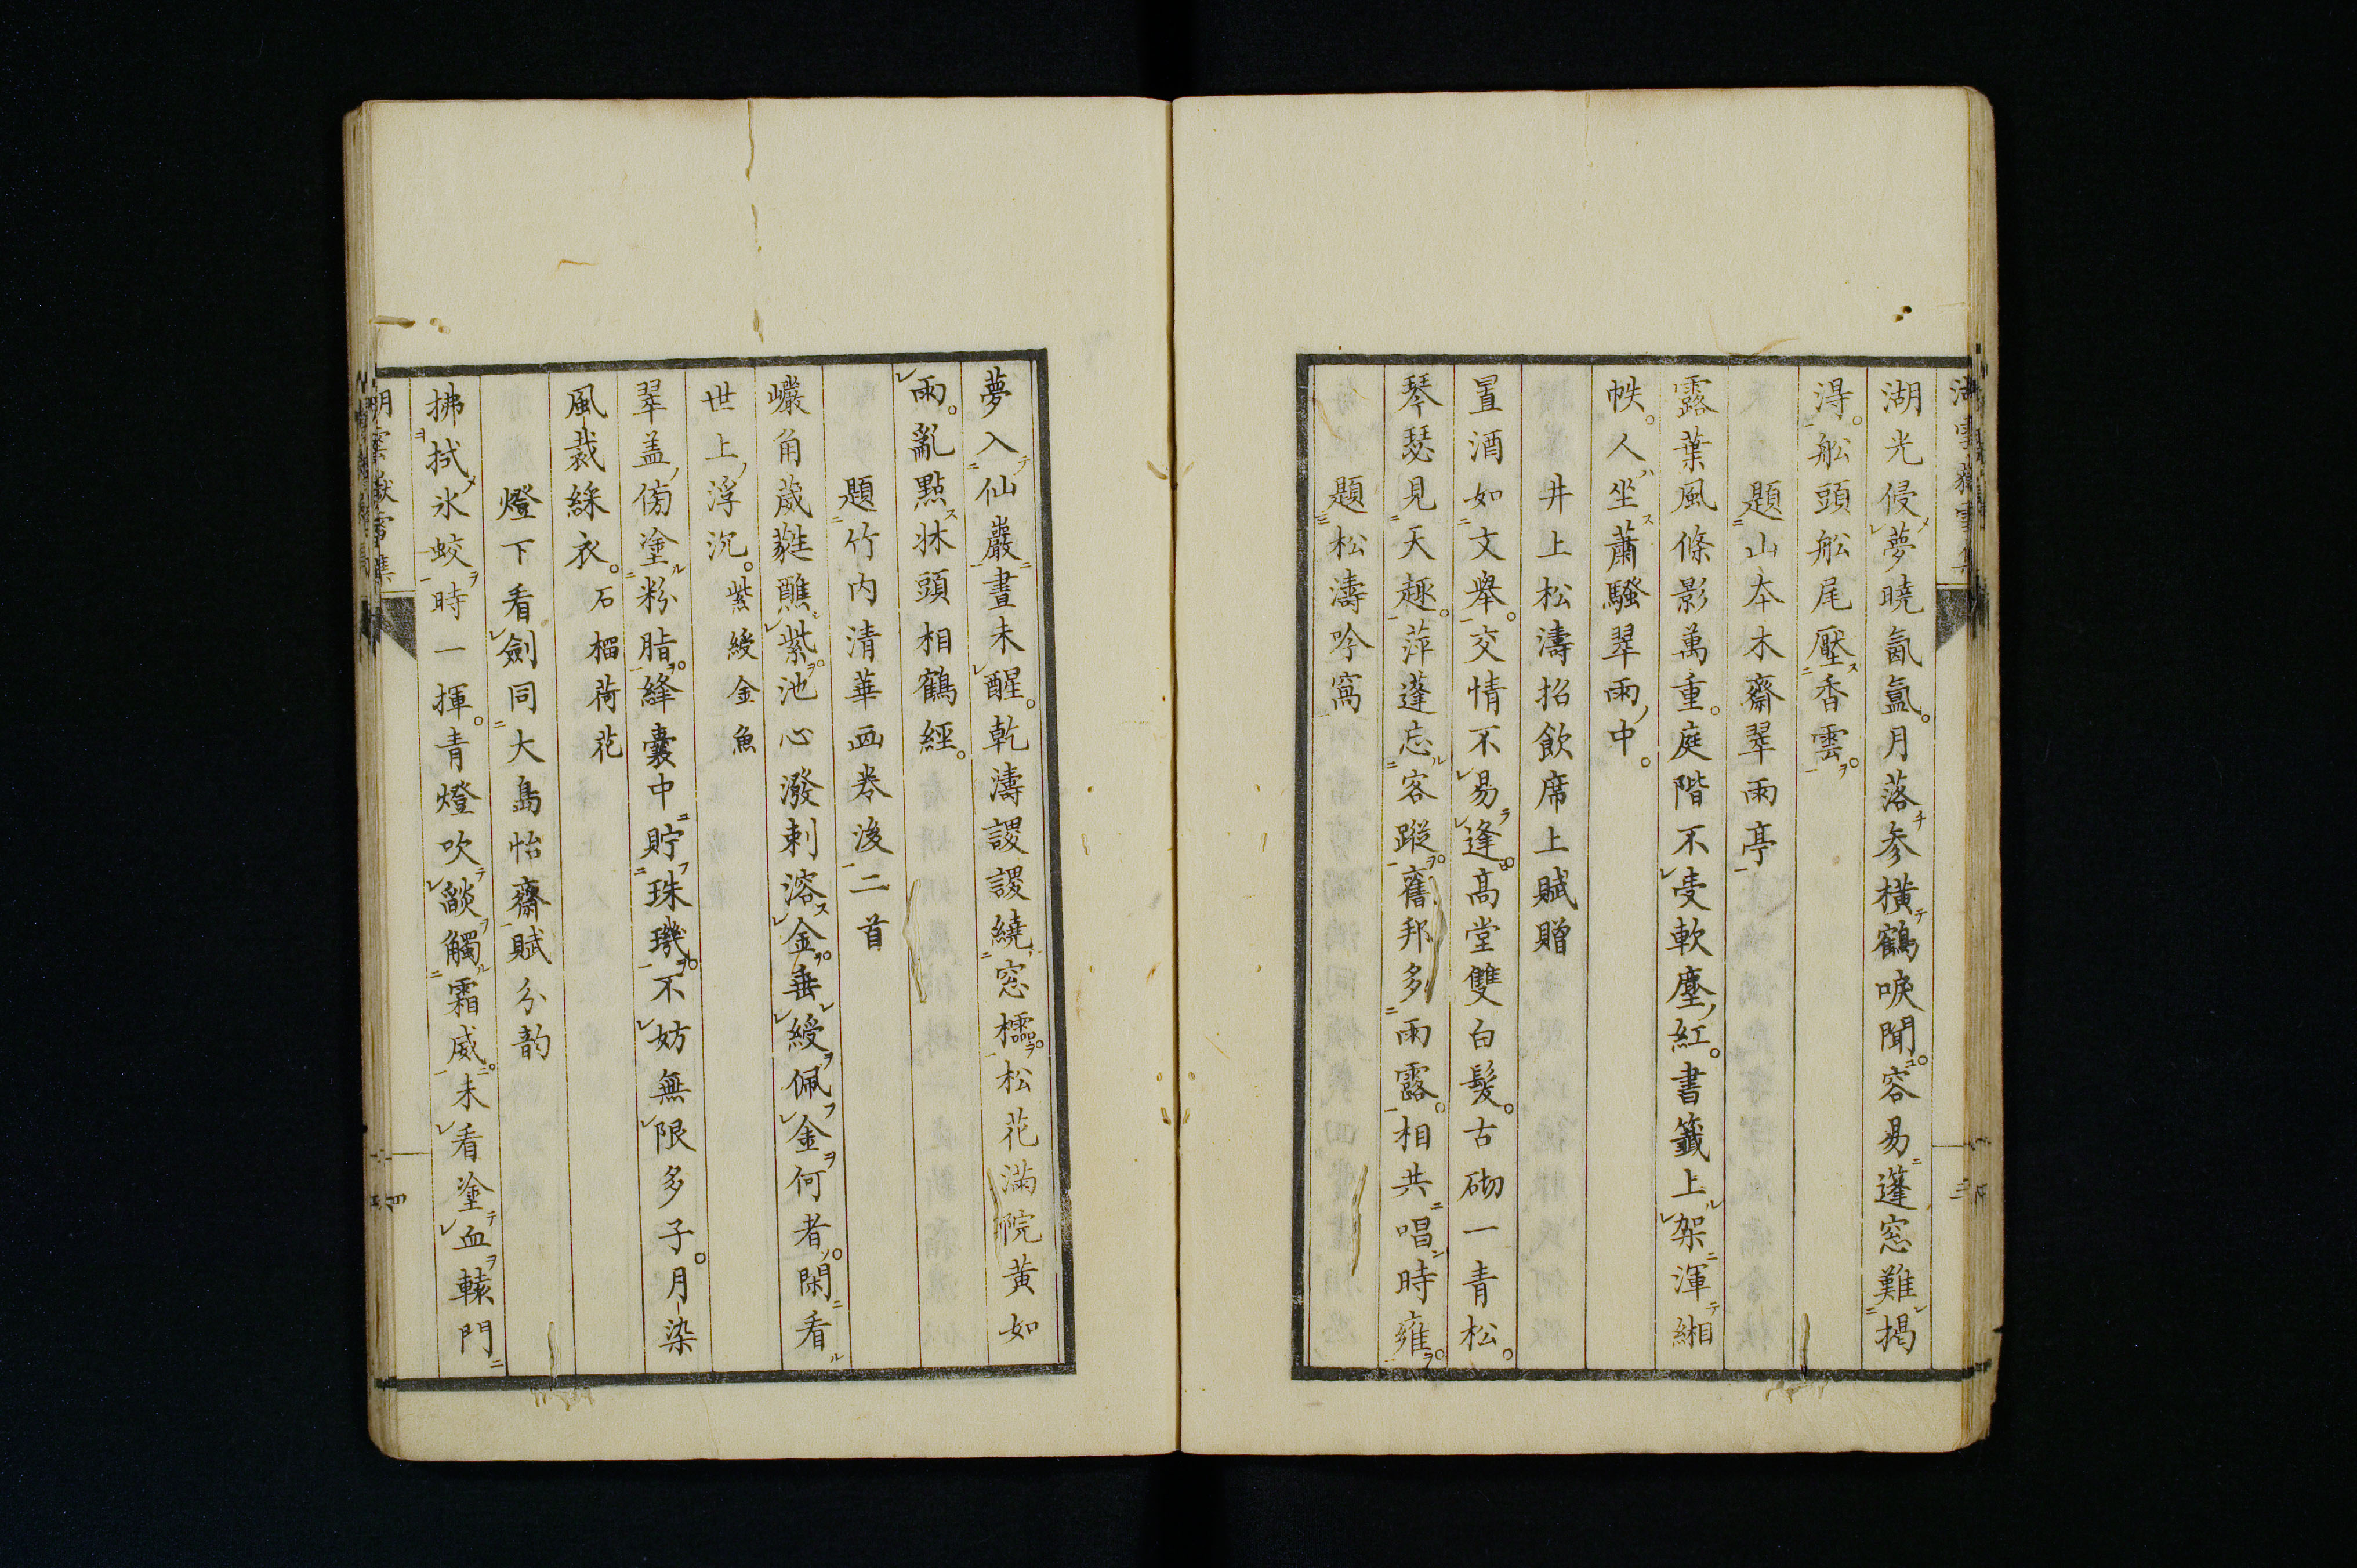 湖光侵夢曉氤氳。月落参橫鶴唳聞。容易蓬窓難揭
淂。舩頭舩尾壓香雲。
題山本木齋翠雨亭
露葉風條影萬重。庭階不受軟塵紅。書籤上架渾緗
帙。人坐蕭騷翠雨中。
井上松濤招飲席上賦贈
置酒如文舉。交情不易逢。高堂雙白髮。古砌一青松。
琴瑟見天趣。萍蓬忘客蹤。舊邦多雨露。相共唱時雍。
題松濤吟窩
夢入仙巖晝未醒。乾濤謖謖繞窓櫺。松花滿院黃如
雨。亂點牀頭相鶴經。
題竹內清華画卷後二首
巉角葳蕤醮紫池心潑剌溶金垂綬佩金何者閑看
世上浮沉。紫綬金魚
翠盖傍塗粉脂絳囊中貯珠璣不妨無限多子。月染
風裁綵衣。石榴荷花
燈下看劍同大島怡齋賦分韵
拂拭氷蛟時一揮。青燈吹燄觸霜威。未看塗血轅門